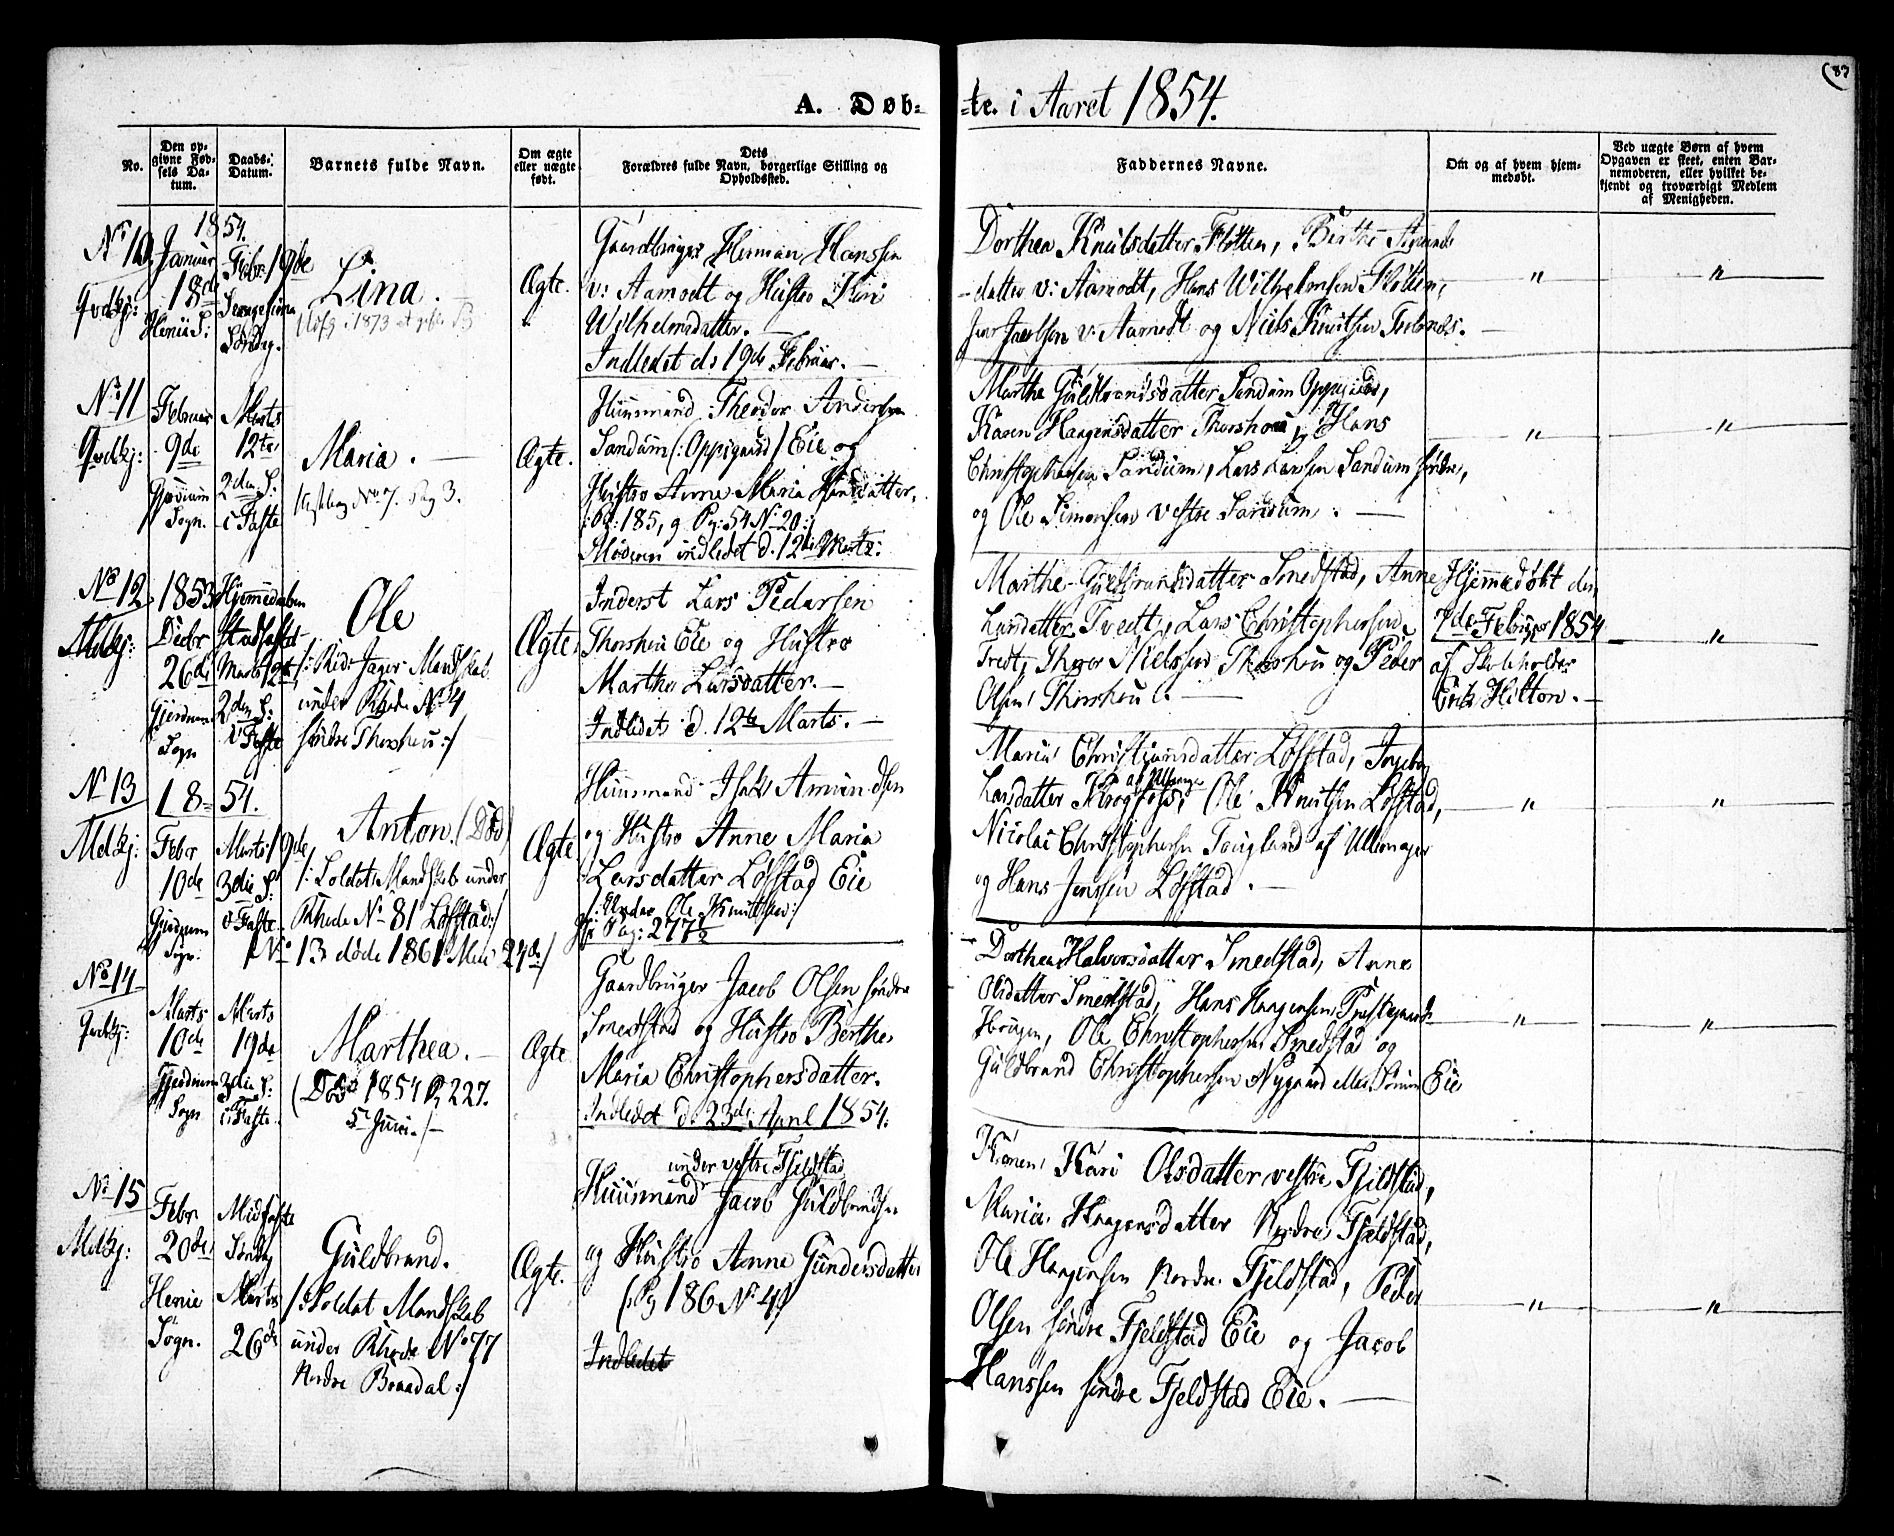 A. Døb-
-te. i Aaret 1854.
(87
No.
Den op-
givne Fød-
sels Da-
tum.
Daabs-
Datum.
Barnets fulde Navn.
Om ægte
eller uægte
født.
Dets
Forældres fulde Navn, borgerlige Stilling og
Opholdssted.
Faddernes Navne.
Om og af hvem hjem-
medøbt.
Ved uægte Børn af hvem
Opgaven er skeet, enten Bar-
nemoderen, eller hvilket be-
kjendt og troværdigt Medlem
af Menigheden.
1854.
No 10
Qvdkj:
Januar
18de
Febr. 19de
Søndag.
Lina.
Ægte.
Gaardbruger Herman Hanssen
v: Aamodt og Hustro
Wilhelmsdatter.
Indledet d. 19de Februar.
Dorthea Knudsdatter Flotten, Berthe
-datter v: Aamodt, Hans Wilhelmsen Flotten,
v: Aamodt og Niels Knutsen
"
"
No 11
Qvdkj:
Februar
9de
Gjerdrum
Sogn.
Marts
12te
2den S:
i Faste
Maria.
No 7. Pag 3.
Ægte.
Huusmand Theodor Andersen
Sandum (: Oppigaard) Eie og
Hustro Anne Maria Hansdatter.
:Pg: 185, g Pg: 54 No 20:
Moderen indledet d. 12te Marts:
Marthe Guldbrandsdatter Sandum Oppigaard,
Karen Haagensdatter Thorshou, Hans
Christophersen Sandum, Lars Larsen Sandum søndre,
og Ole Simensen Vestre Sandum.
"
"
No 12
Mdkj:
1853
Decbr
26de
Gjerdrum
Sogn
Hjemmedaaben
Stadfæstet
Marts 12te
2den S:
i Faste
Ole
/: Ride Jager Mandskab
under Rhode No 4
søndre Thorshou :/
Ægte.
Inderst Lars Pedersen
Thorshou Eie og Hustro
Marthe Larsdatter.
Indledet d. 12te Marts.
Marthe Guldbrandsdatter Smedstad, Anne
Larsdatter Tvedt, Lars Christophersen
Tvedt, Thor Nielssen Thorshou og Peder
Olsen Thorshou.
Hjemmedøbt den
7de Februar 1854
af Skoleholder
Hilton.
"
No 13
Mdkj:
1854.
Febr
10de
Gjerdrum
Sogn.
Marts 19de
3die S:
i Faste.
Anton. (Død)
/: Soldat Mandskab under
Rhode No 81 Løfstad:/
No 13 døde 1861 Mai 24de:/
Ægte
Huusmand Isak Amundsen
og Hustro Anne Maria
Larsdatter Løfstad Eie
/: Under Ole Knutsen:/
Pag: 277
Maria Christiansdatter Løfstad, Ingeborg
af Ullensager
Larsdatter Krogfoss, Ole Knutsen Løfstad,
Nicolai Christophersen af Ullensager
og Hans Jenssen Løfstad.
"
"
No 14
Qvdkj:
Marts
10de
Gjerdrum
Sogn
Marts
19de
3die S:
i Faste.
Marthea.
(Død 1854 Pg 227.
5te Juni.
Ægte
Gaardbruger Jacob Olsen søndre
Smedstad og Hustro Berthe
Maria Christophersdatter.
Indledet d. 23de April 1854.
Dorthea Halvorsdatter Smedstad, Anne
Olsdatter Smedstad, Hans Haagensen Præstegaards-
Haugen, Ole Christophersen Smedstad og
Guldbrand Christophersen Nygaard eller Eie
"
"
No 15
Mdkj:
Febr
20de
Henie
Sogn.
Midfaste
Søndag
Marts
26de
Guldbrand.
/: Soldat Mandskab
under Rhode No 77
Nordre Braadal:/
Ægte.
under vestre Fjeldstad
Huusmand Jacob Guldbrandsen
og Hustro Anne Gundersdatter
(Pg 186 No 4)
Indledet
Konen Kari Olsdatter vestre Fjeldstad,
Maria Haagensdatter Nordre Fjeldstad,
Ole Haagensen Nordre Fjeldstad, Peder
Olsen søndre Fjeldstad Eie og Jacob
Hanssen søndre Fjeldstad Eie.
"
"